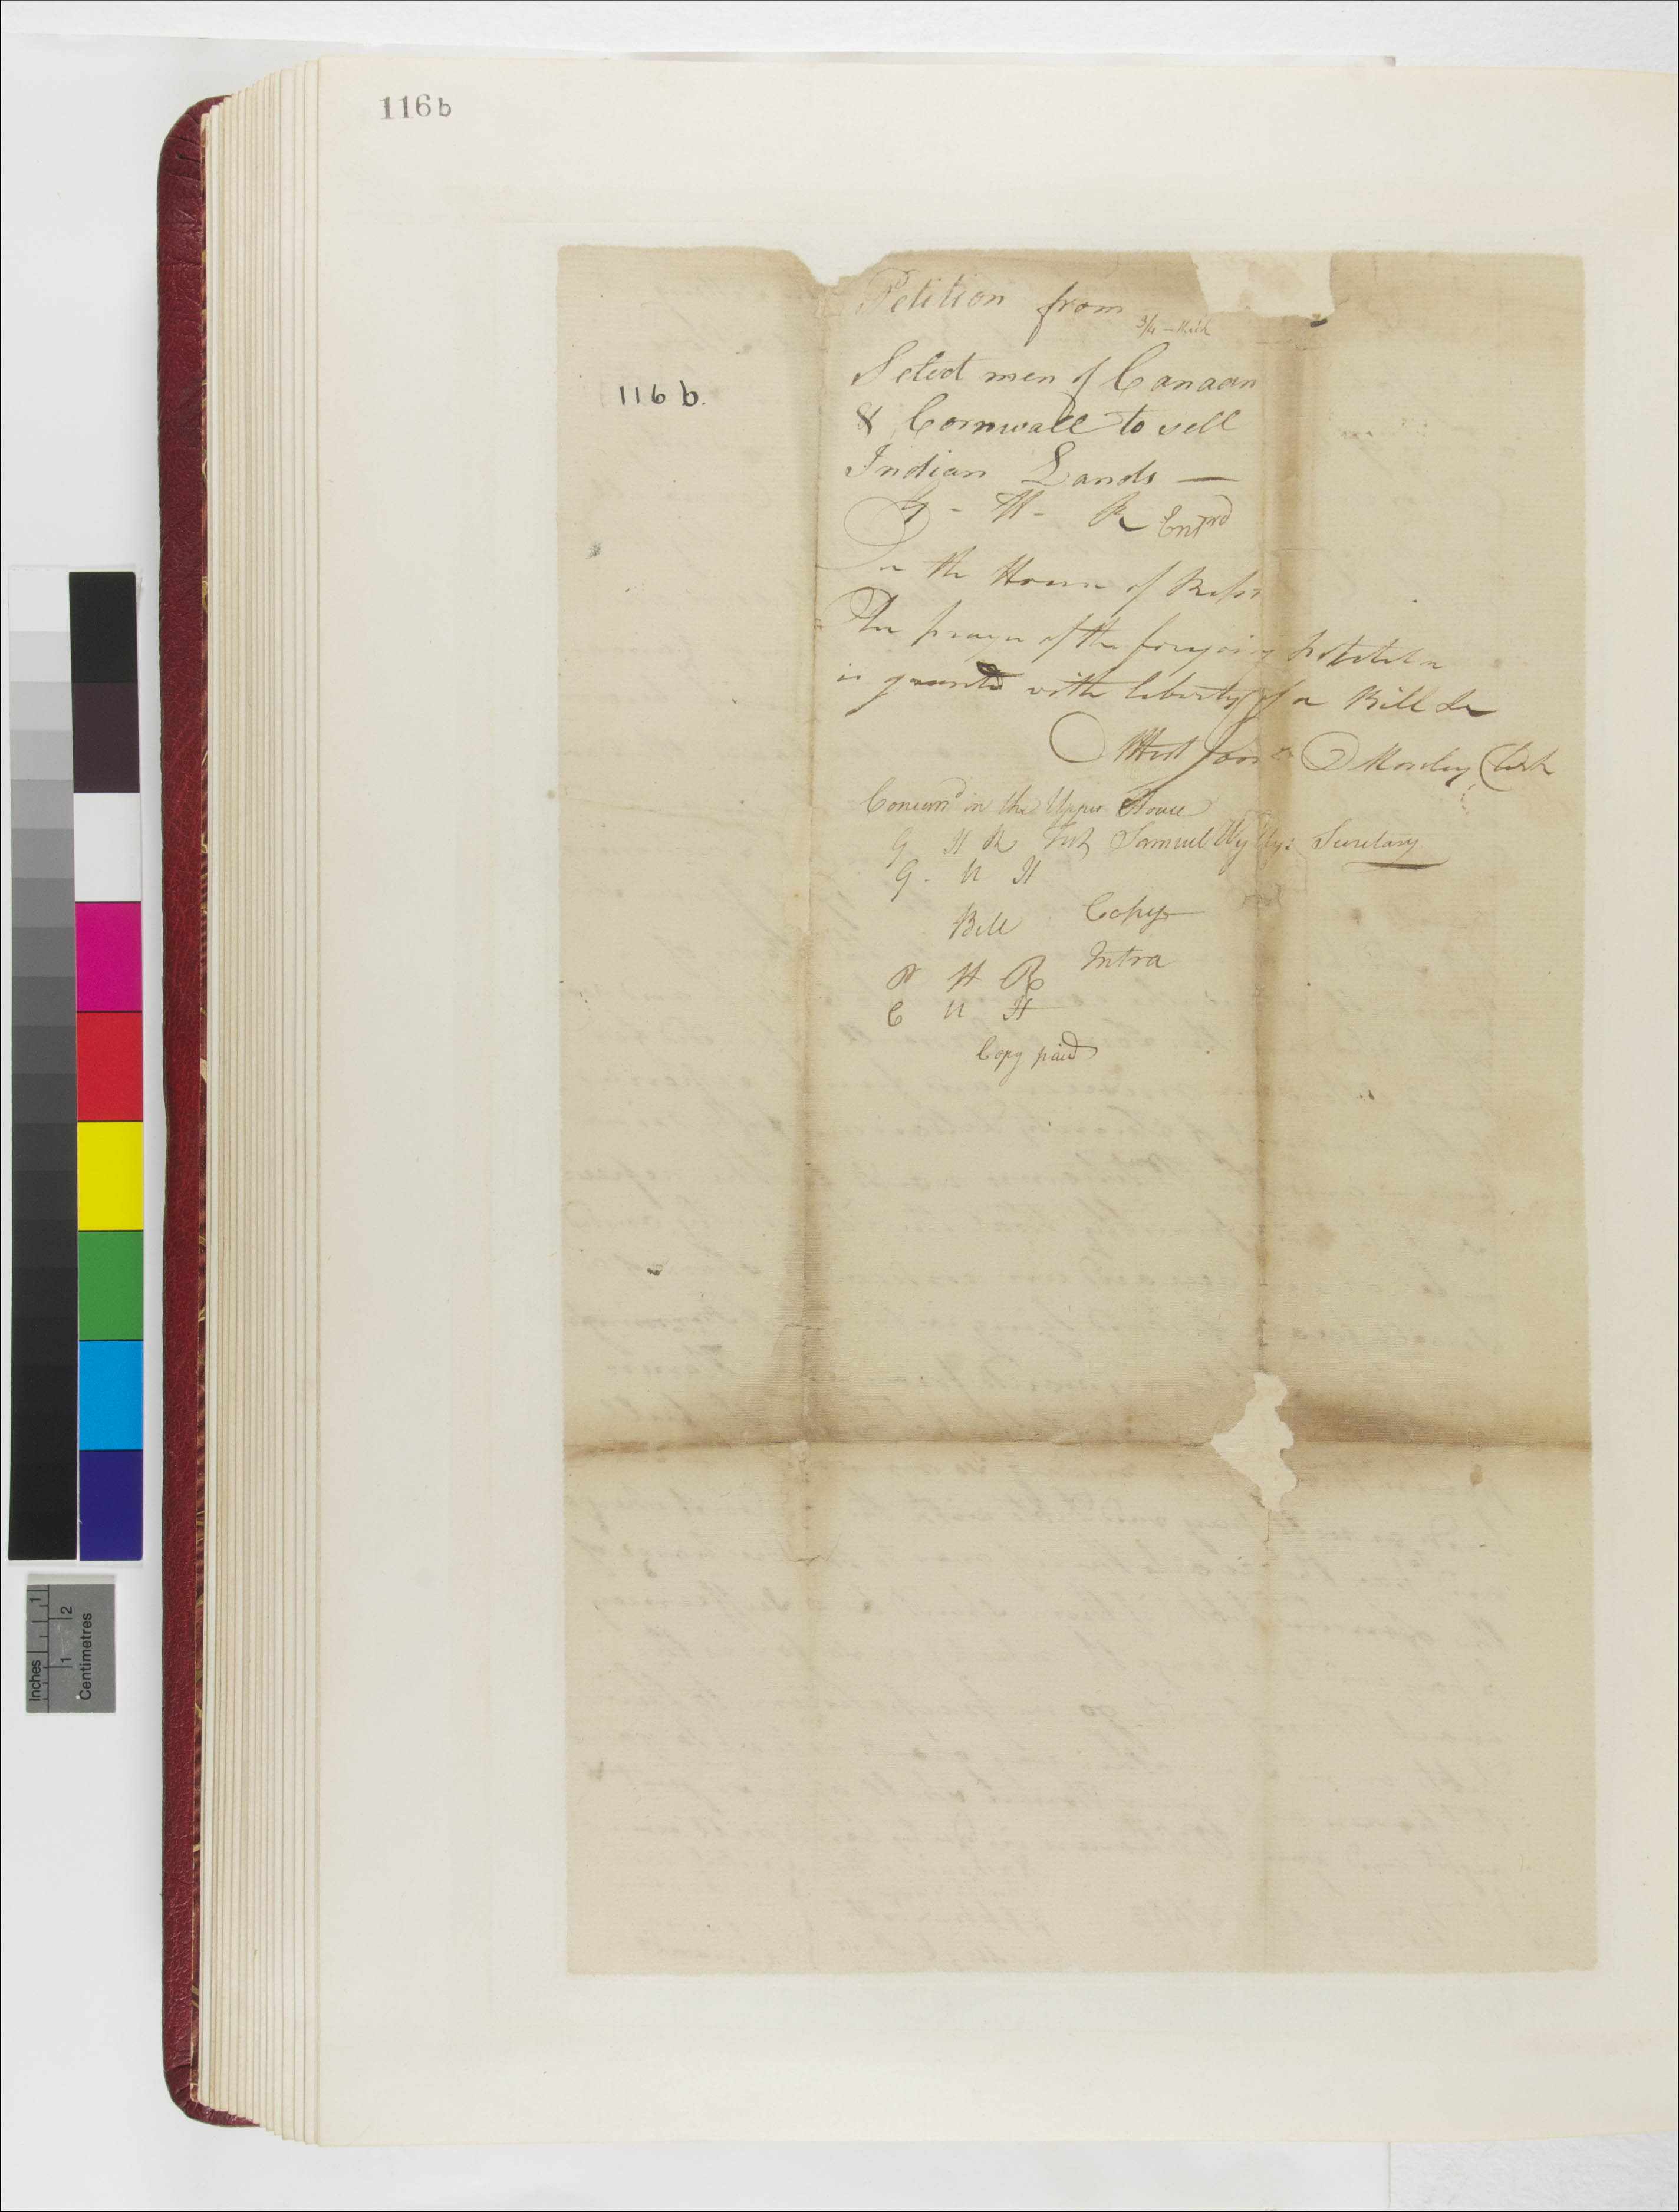 116b
116 b.
Petition from
Select men of Canaan
& Cornwall to sell
Indian Lands —
G - H - R Entrd
In the House of Repr
The prayer of the foregoing Petition
is granted with liberty of a Bill &c
Test Moseley Clerk
Concurrd in the Upper House
G H R Test Samuel Wyllys Secretary
G. U H
Bill Copy
Intra
P H R
C U H
Copy paid
Inches 1
1 2
Centimetres